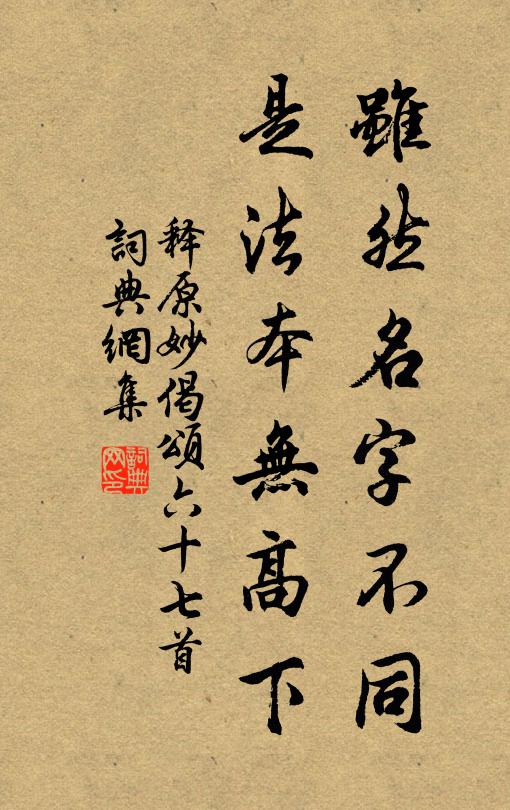 雖然名字不同
是法本無高下
释原妙偈頌六十七首
詞典網集
詞典
网印